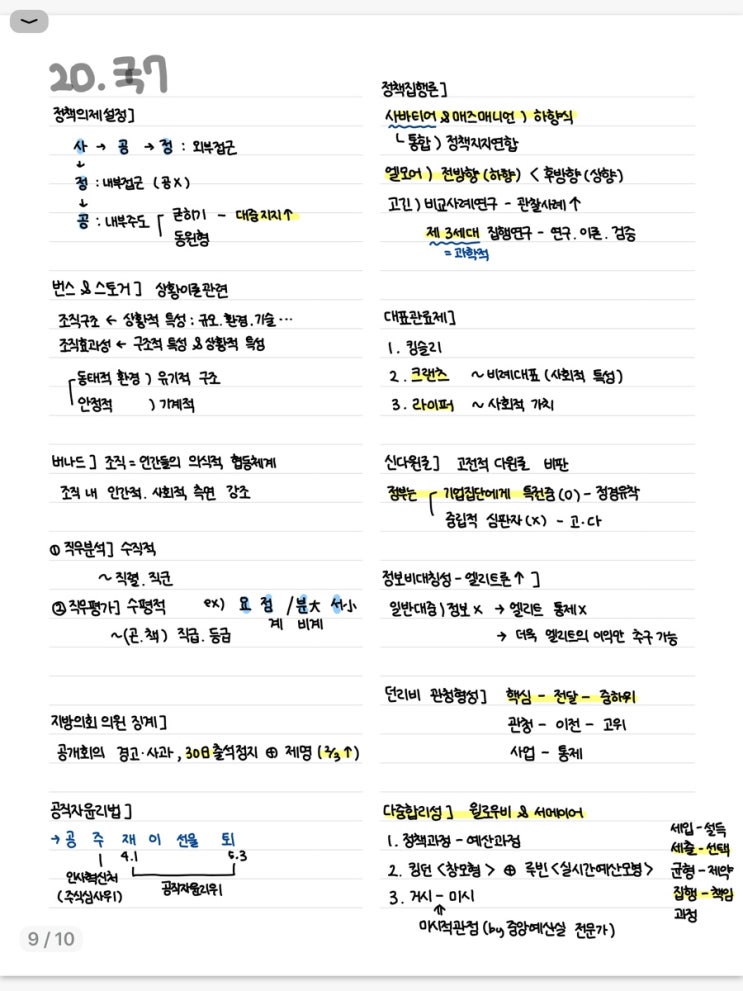 20. 국7
정책의제설정]
사 → 공 → 정 : 외부접근
↓
정 : 내부접근 (공X)
↓
공 : 내부주도 굳히기 - 대중지지↑
동원형
번스 & 스토거] 상황이론관련
조직구조 ← 상황적 특성 : 규모. 환경. 기술 …
조직효과성 ← 구조적 특성 & 상황적 특성
동태적 환경) 유기적 구조
안정적 ) 기계적
버나드] 조직 = 인간들의 의식적 협동체계
조직 내 인간적. 사회적 측면 강조
① 직무분석] 수직적
~ 직렬. 직군
② 직무평가] 수평적 ex) 요 점 / 분大 서小
계 비계
~(곤. 책) 직급. 등급
지방의회 의원 징계]
공개회의 경고·사과, 30日출석정지 ⊕ 제명 (2/3↑)
공직자윤리법]
→ 공 주 재 이 선물 퇴
4.1 5.3
인사혁신처
(주식심사위)
공직자윤리위
정책집행론]
사바티어 & 매즈매니언) 하향식
통합) 정책지지연합
엘모어) 전방향(하향) < 후방향(상향)
고긴) 비교사례연구 - 관찰사례↑
제 3세대 집행연구 - 연구. 이론. 검증
= 과학적
대표관료제]
1. 킹슬리
2. 크랜츠 ~ 비례대표 (사회적 특성)
3. 라이퍼 ~ 사회적 가치
신다원론] 고전적 다원론 비판
정부는 기업집단에게 특전줌(O) - 정경유착
중립적 심판자(X) - 고.다
정보비대칭성 - 엘리트론↑]
일반대중) 정보 X → 엘리트 통제X
→ 더욱 엘리트의 이익만 추구 가능
던리비 관청형성] 핵심 - 전달 - 중하위
관청 - 이전 - 고위
사업 - 통제
다중합리성] 윌로우비 & 서메이어
1. 정책과정 - 예산과정
2. 킹던 <창모형> ⊕ 루빈 <실시간예산모형>
3. 거시 - 미시
미시적관점 (by 중앙예산실 전문가)
세입 - 설득
세출 - 선택
균형 - 제약
집행 - 책임
과정
9 / 10